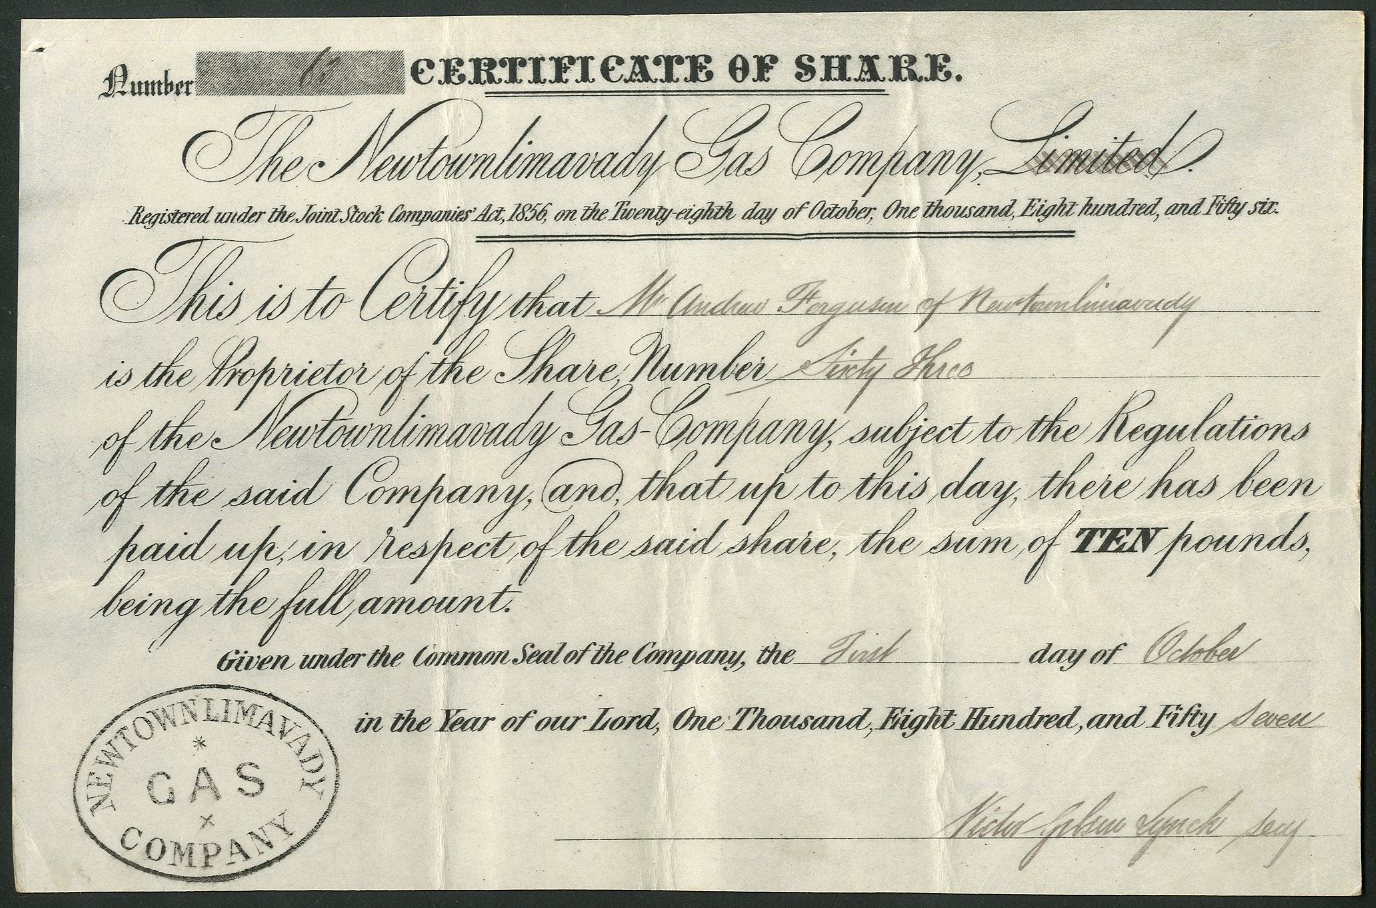 Number 63 CERTIFICATE OF SHARE.
The Newtownlimavady Gas Company, Limited.
Registered under the Joint Stock Companies' Act, 1856, on the Twenty-eighth day of October, One thousand, Eight hundred, and Fifty six.
This is to Certify that Mr Andrew Ferguson of Newtownlimavady
is the Proprietor of the Share, Number Sixty Three
of the Newtownlimavady Gas-Company, subject to the Regulations
of the said Company, and, that up to this day, there has been
paid up, in respect of the said share, the sum of TEN pounds,
being the full amount.
Given under the Common Seal of the Company, the First day of October
in the Year of our Lord, One Thousand, Eight Hundred, and Fifty Seven
NEWTOWNLIMAVADY
GAS
COMPANY
Victor Lynch secy